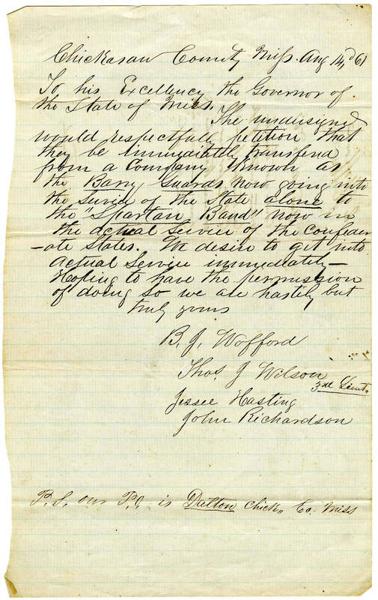 Chickasaw County Miss. Aug 14th 61
To his Excellency the Governor of
the State of Miss. The undersigned
would respectfully petition that
they be immediately transferred
from a Company known as
the Barry Guards now going into
the service of the State alone to
the "Spartan Band" now in
the actual service of the Confeder
-ate States. We desire to get into
actual service immediately—
Hoping to have the permission
of doing so we are hastily but
truly yours
B. J. Wofford
Thos. J Wilson
3rd Lieut.
Jessee Hasting
John Richardson
P.S. our P.O. is Dalton Chicks. Co. Miss